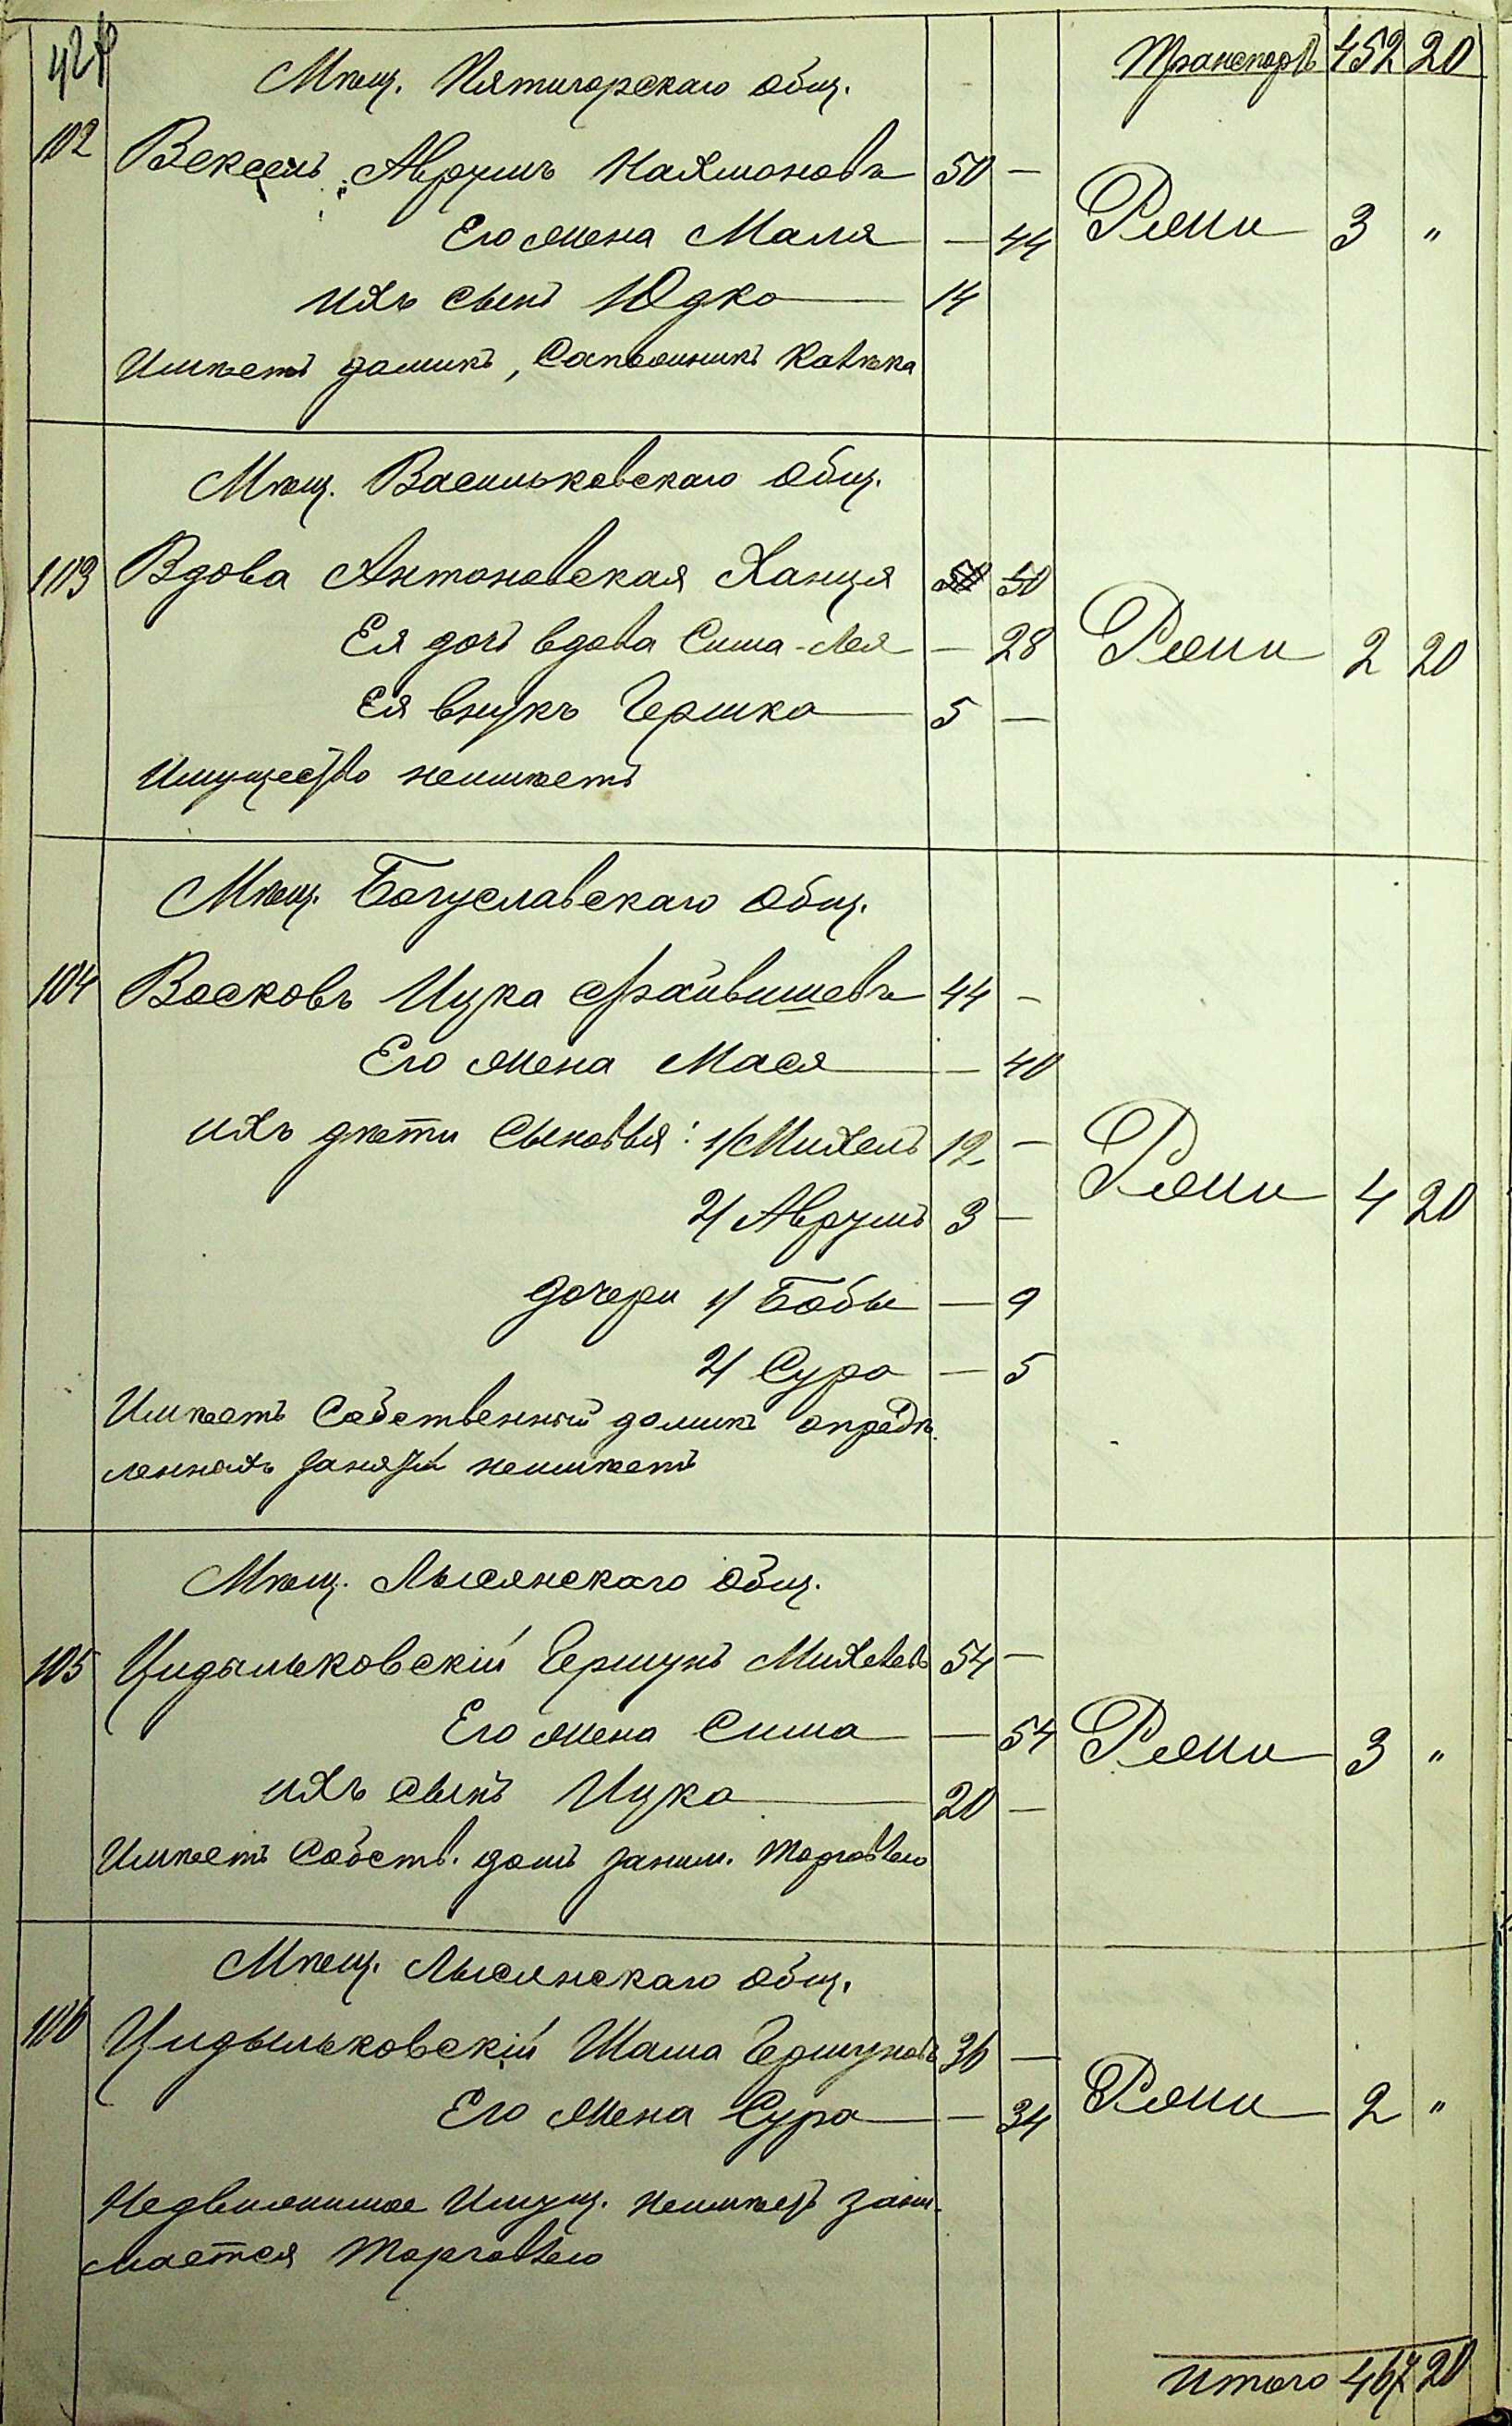 Транспортъ 452 20
Мѣщ. Пятигорскаго общ.
102 Вексель Аврумъ Нахмоновъ 50 —
Его жена Маля — 44 Ряжи 3 "
ихъ сынъ Юдко 14
Имѣетъ домикъ, Сапожникъ
Мѣщ. Васильковскаго общ.
103 Вдова Антоновская Ханця 50 50
Ея дочь вдова Сима-Лея — 28 Ряжи 2 20
Ея внукъ Гершко 5 —
Имущество неимѣетъ
Мѣщ. Богуславскаго общ.
104 Восковъ Ицко Файвишевъ 44 —
Его жена Мася — 40
ихъ дѣти сыновья: 1/ Михель 12 —
Ряжи 4 20
2/ Аврумъ 3 —
дочери 1/ Бобы — 9
2/ Сура — 5
Имѣетъ собственный домикъ опредѣ-
ленныхъ занятій неимѣетъ
Мѣщ. Лысянскаго общ.
105 Цидыльковскій Гершунъ Михелевъ 54 —
Его жена Сима — 54 Ряжи 3 "
ихъ сынъ Ицко 20 —
Имѣетъ собств. домъ заним. торговлею
Мѣщ. Лысянскаго общ.
106 Цидыльковскій Шама Гершуновъ 36 —
Его жена Сура — 34 Ряжи 2 "
Недвижимое имущ. неимѣетъ зани-
мается торговлею
Итого 467 20